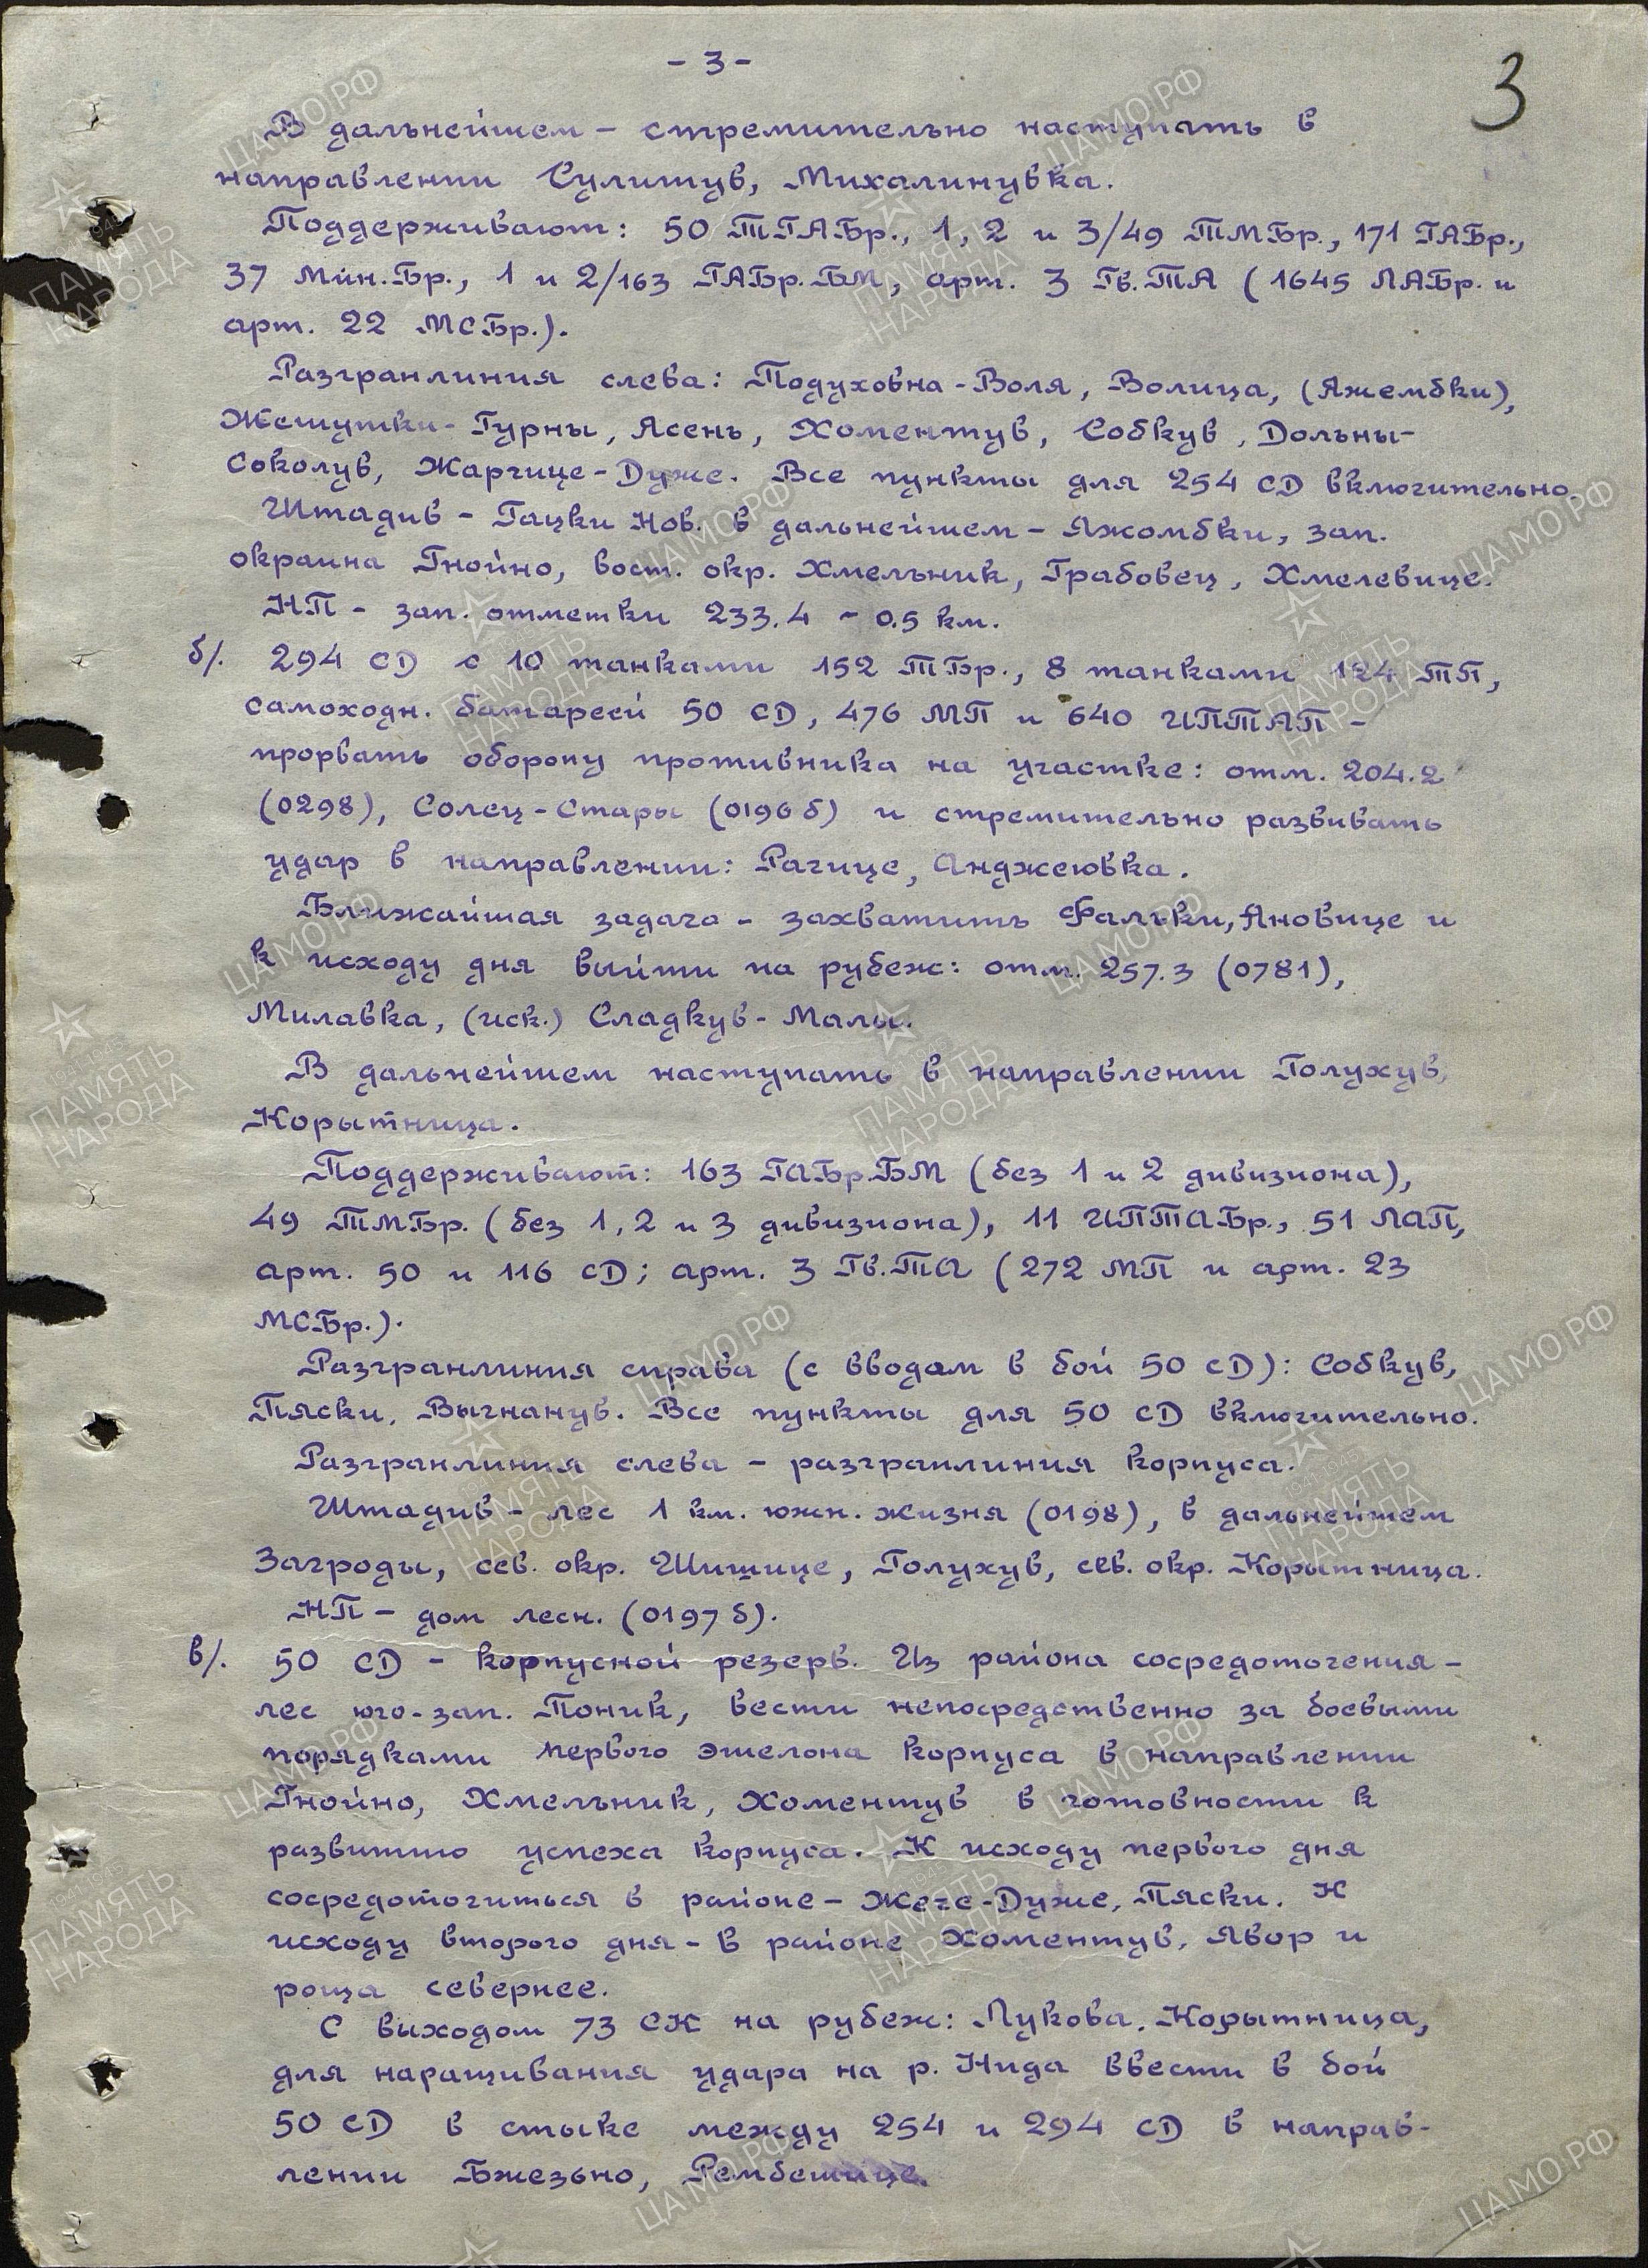 - 3 -
3
В дальнейшем - стремительно наступать в
направлении Сулишув, Михалинувка.
Поддерживают: 50 ТГАБр., 1, 2 и 3/49 ТМБр., 171 ГАБр.,
37 Мин.Бр., 1 и 2/163 ГАБр.БМ, арт. 3 Гв.ТА (1645 ЛАБр. и
арт. 22 МСБр.).
Разгранлиния слева: Подуховна-Воля, Волица, (Яжембки),
Жешутки-Гурны, Ясень, Хоментув, Собкув, Дольны-
Соколув, Жарчице-Дуже. Все пункты для 254 СД включительно.
Штадив - Гацки Нов. в дальнейшем - Яжомбки, зап.
окраина Гнойно, вост. окр. Хмельник, Грабовец, Хмелевице.
НП - зап. отметки 233.4 - 0.5 км.
б/. 294 СД с 10 танками 152 ТБр., 8 танками 124 ТП,
самоходн. батареей 50 СД, 476 МП и 640 ИПТАП -
прорвать оборону противника на участке: отм. 204.2
(0298), Солец-Стары (0196б) и стремительно развивать
удар в направлении: Рачице, Анджеювка.
Ближайшая задача - захватить Фальки, Яновице и
к исходу дня выйти на рубеж: отм. 257.3 (0781),
Милавка, (иск.) Сладкув-Малы.
В дальнейшем наступать в направлении Голухув,
Корытница.
Поддерживают: 163 ГАБр.БМ (без 1 и 2 дивизиона),
49 ТМБр. (без 1, 2 и 3 дивизиона), 11 ИПТАБр., 51 ЛАП,
арт. 50 и 116 СД; арт. 3 Гв.ТА (272 МП и арт. 23
МСБр.).
Разгранлиния справа (с вводам в бой 50 СД): Собкув,
Пяски, Выгнанув. Все пункты для 50 СД включительно.
Разгранлиния слева - разгранлиния корпуса.
Штадив - лес 1 км. южн. Жизня (0198), в дальнейшем
Загроды, сев. окр. Шишице, Голухув, сев. окр. Корытница.
НП - дом лесн. (0197б).
в/. 50 СД - корпусной резерв. Из района сосредоточения -
лес юго-зап. Поник, вести непосредственно за боевыми
порядками первого эшелона корпуса в направлении
Гнойно, Хмельник, Хоментув в готовности к
развитию успеха корпуса. К исходу первого дня
сосредоточиться в районе - Жече-Дуже, Пяски. К
исходу второго дня - в районе Хоментув, Явор и
роща севернее.
С выходом 73 СК на рубеж: Лукова, Корытница,
для наращивания удара на р. Нида ввести в бой
50 СД в стыке между 254 и 294 СД в направ-
лении Бжезьно, Рембешице.